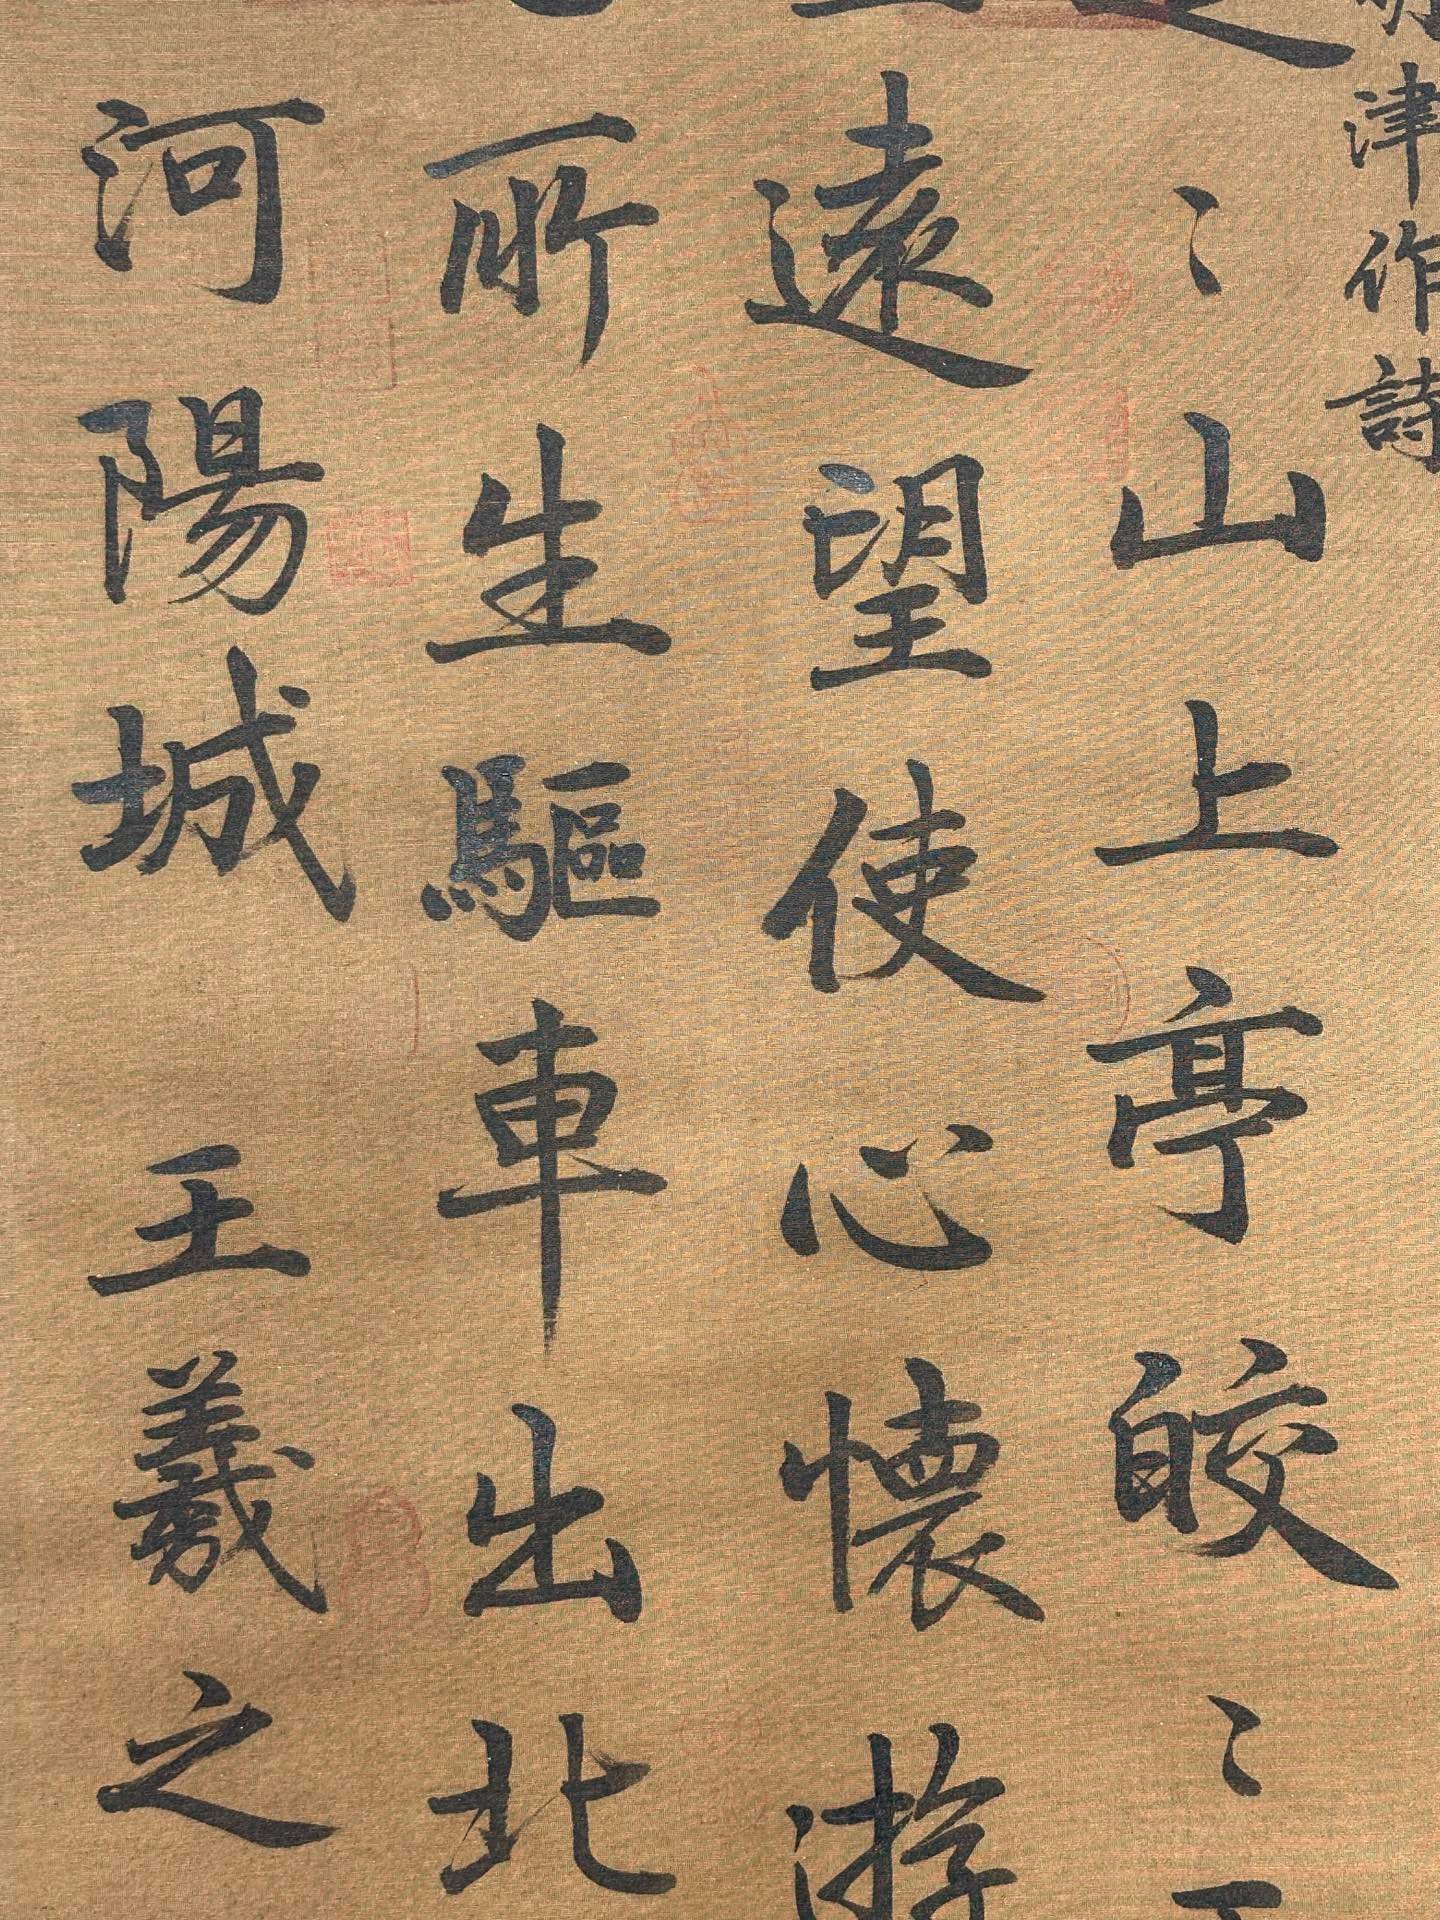 津作詩
〻山上亭皎〻
遠望使心懷游
所生驅車出北
河陽城 王羲之